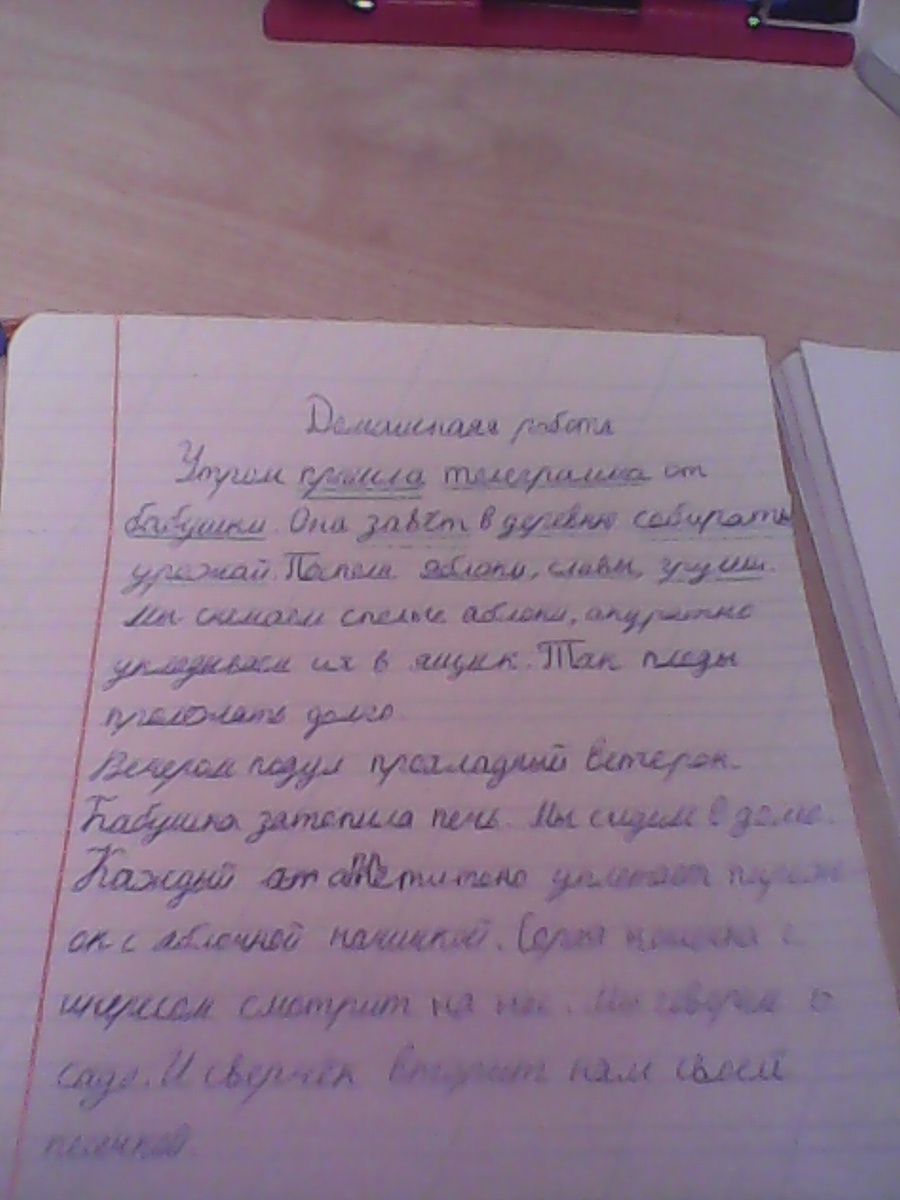 Домашнаяя работа
Утром пришла телеграмма от
бабушки. Она завёт в деревню собирать
урожай. Поспели яблоки, сливы, груши.
Мы снимаем спелые яблоки, аккуратно
укладываем их в ящик. Так плоды
пролежать долго.
Вечером подул прохладный ветерок.
Бабушка затопила печь. Мы сидим в доме.
Каждый уплетает пирож
ок с яблочной начинкой. Серая кошечка с
инересом смотрит на нас. Мы говорим о
саде. И сверчёк вторит нам своей
песенкой.